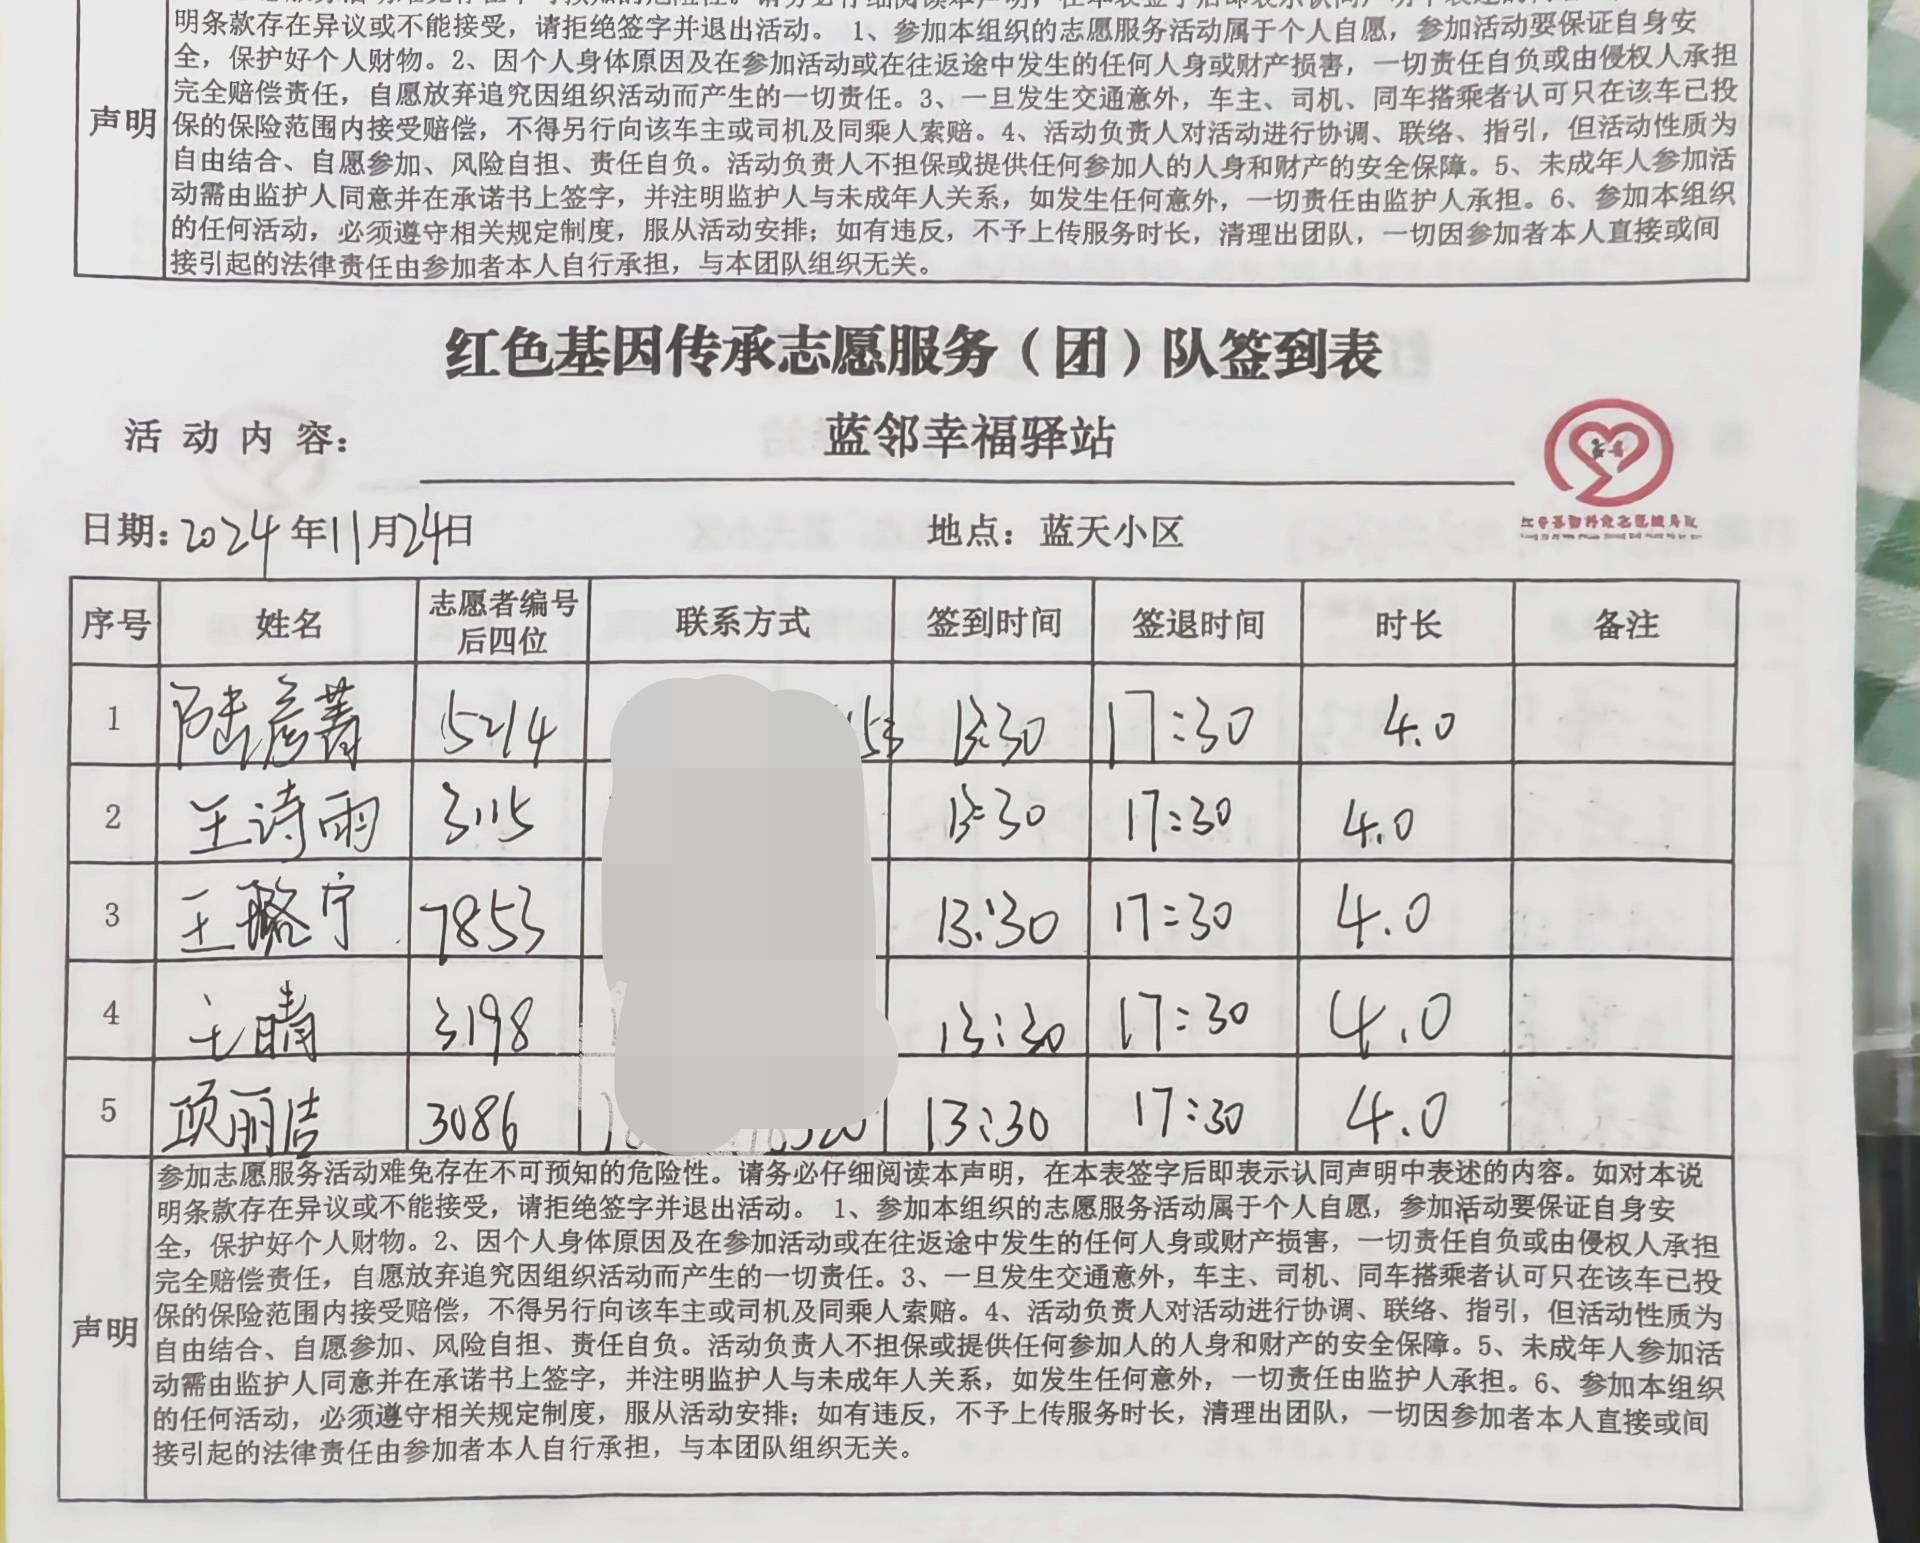 明条款存在异议或不能接受，请拒绝签字并退出活动。 1、参加本组织的志愿服务活动属于个人自愿，参加活动要保证自身安
全，保护好个人财物。2、因个人身体原因及在参加活动或在往返途中发生的任何人身或财产损害，一切责任自负或由侵权人承担
完全赔偿责任，自愿放弃追究因组织活动而产生的一切责任。3、一旦发生交通意外，车主、司机、同车搭乘者认可只在该车已投
声明
保的保险范围内接受赔偿，不得另行向该车主或司机及同乘人索赔。4、活动负责人对活动进行协调、联络、指引，但活动性质为
自由结合、自愿参加、风险自担、责任自负。活动负责人不担保或提供任何参加人的人身和财产的安全保障。5、未成年人参加活
动需由监护人同意并在承诺书上签字，并注明监护人与未成年人关系，如发生任何意外，一切责任由监护人承担。6、参加本组织
的任何活动，必须遵守相关规定制度，服从活动安排；如有违反，不予上传服务时长，清理出团队，一切因参加者本人直接或间
接引起的法律责任由参加者本人自行承担，与本团队组织无关。
红色基因传承志愿服务（团）队签到表
活动内容： 蓝邻幸福驿站
日期：2024年11月24日 地点：蓝天小区
序号 姓名 志愿者编号后四位 联系方式 签到时间 签退时间 时长 备注
1 陆彦菁 5214 13:30 17:30 4.0
2 王诗雨 3115 13:30 17:30 4.0
3 王璐宁 7853 13:30 17:30 4.0
4 王晴 3198 13:30 17:30 4.0
5 项丽洁 3086 13:30 17:30 4.0
参加志愿服务活动难免存在不可预知的危险性。请务必仔细阅读本声明，在本表签字后即表示认同声明中表述的内容。如对本说
明条款存在异议或不能接受，请拒绝签字并退出活动。 1、参加本组织的志愿服务活动属于个人自愿，参加活动要保证自身安
全，保护好个人财物。2、因个人身体原因及在参加活动或在往返途中发生的任何人身或财产损害，一切责任自负或由侵权人承担
完全赔偿责任，自愿放弃追究因组织活动而产生的一切责任。3、一旦发生交通意外，车主、司机、同车搭乘者认可只在该车已投
保的保险范围内接受赔偿，不得另行向该车主或司机及同乘人索赔。4、活动负责人对活动进行协调、联络、指引，但活动性质为
声明
自由结合、自愿参加、风险自担、责任自负。活动负责人不担保或提供任何参加人的人身和财产的安全保障。5、未成年人参加活
动需由监护人同意并在承诺书上签字，并注明监护人与未成年人关系，如发生任何意外，一切责任由监护人承担。6、参加本组织
的任何活动，必须遵守相关规定制度，服从活动安排；如有违反，不予上传服务时长，清理出团队，一切因参加者本人直接或间
接引起的法律责任由参加者本人自行承担，与本团队组织无关。